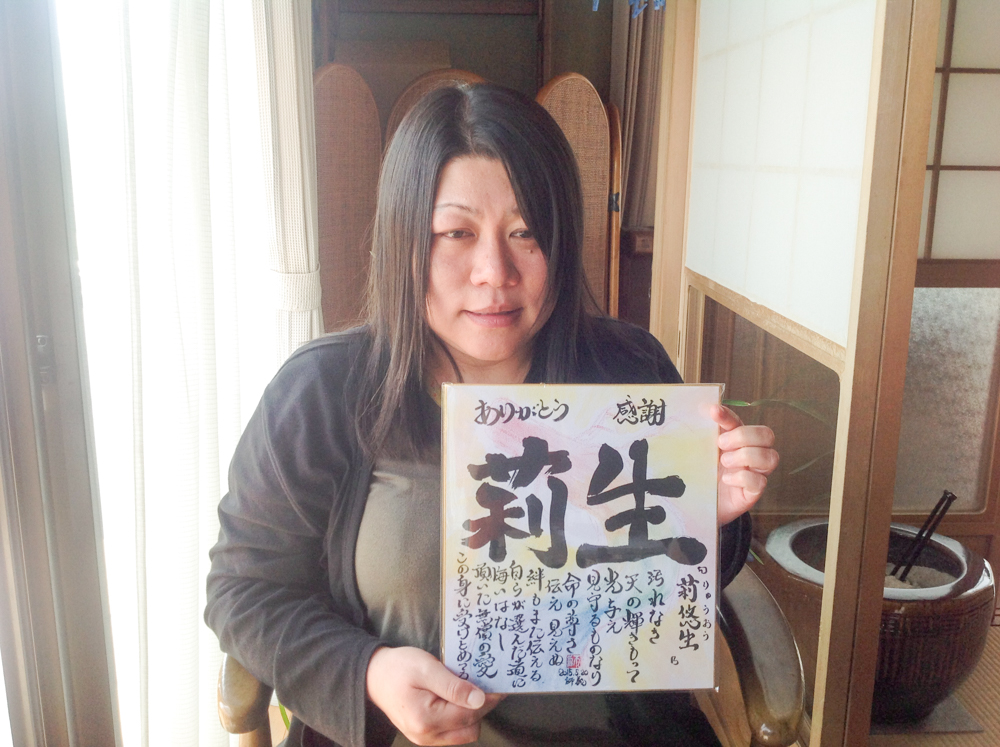 ありがとう 感謝
莉生
莉悠生
汚れなき
天の輝きもって
光与え
見守るものなり
命の尊さ
伝え 見えぬ
絆もまた伝える
自らが選んだ道に
悔いはなし
頂いた無償の愛
この身に受けとめ
2015.5.20